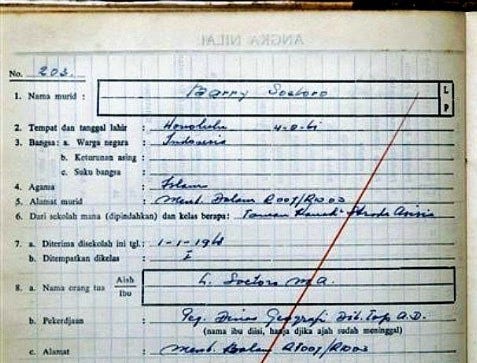 ANGKA NILAI
No. 203.
1. Nama murid : Barry Soetoro L P
2. Tempat dan tanggal lahir : Honolulu 4-8-61
3. Bangsa : a. Warga negara : Indonesia
b. Keturunan asing :
c. Suku bangsa :
4. Agama : Islam
5. Alamat murid : Ment. Dalam R001/RW03
6. Dari sekolah mana (dipindahkan) dan kelas berapa : Taman Kanak² Strada Asisia
7. a. Diterima disekolah ini tgl. : 1-1-1968
b. Ditempatkan dikelas : I
8. a. Nama orang tua Ajah Ibu : L. Soetoro M.A.
b. Pekerdjaan : Peg. Dinas Geografi Dit. Top. A.D.
(nama ibu diisi, hanja djika ajah sudah meninggal)
c. Alamat : Ment. Dalam RT001/RW03